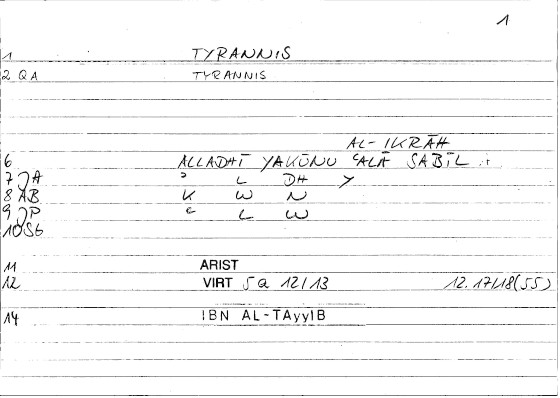 1
1 TYRANNIS
2 QA TYRANNIS
AL-IKRĀH
6 ALLADHĪ YAKŪNU ʿALĀ SABĪL
7 JA ʾ L DH Y
8 AB K W N
9 JP ʿ L W
10 SG
11 ARIST
12 VIRT 5a 12/13 12.17/18(55)
14 IBN AL-TAyyIB